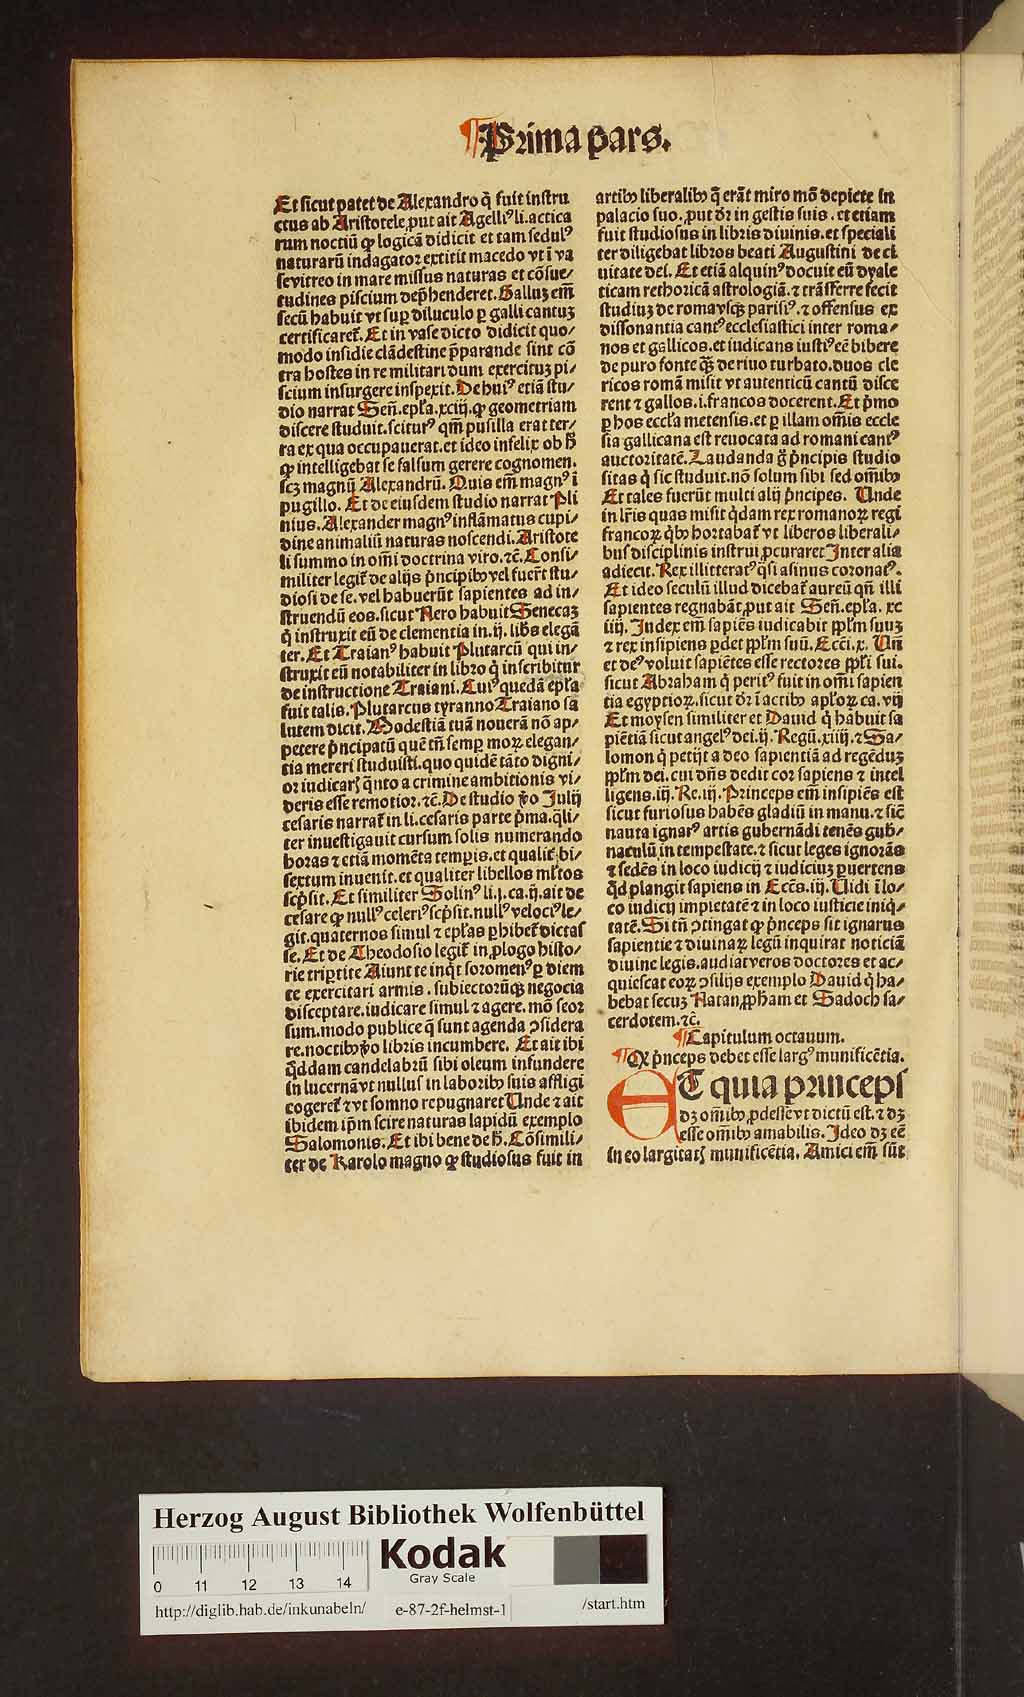 ¶Prima pars.
Et sicut patet de Alexandro q̄ fuit instru
ctus ab Aristotele, put ait Agelliꝰ li. actica
rum noctiū ꝙ logicā didicit et tam sedulꝰ
naturarū indagator extitit macedo vt ī va
se vitreo in mare missus naturas et cōsue⸗
tudines piscium dep̄henderet. Galluꝫ em̄
secū habuit vt suꝑ diluculo ꝑ galli cantuꝫ
certificaret̄. Et in vase dicto didicit quo⸗
modo insidie clādestine p̄parande sint cō
tra hostes in re militari dum exercituꝫ pi⸗
scium insurgere inspexit. De huiꝰ etiā stu⸗
dio narrat Señ. epl̄a. xciij. ꝙ geometriam
discere studuit. sciturꝰ qm̄ pusilla erat ter⸗
ra ex qua occupauerat. et ideo infelix ob h̄
ꝙ intelligebat se falsum gerere cognomen.
scꝫ magnū Alexandrū. Quis em̄ magnꝰ ī
pugillo. Et de eiusdem studio narrat Pli
nius. Alexander magnꝰ inflāmatus cupi⸗
dine animaliū naturas noscendi. Aristote
li summo in om̄i doctrina viro. ⁊c̄. Consi⸗
militer legit̄ de alijs p̄ncipibꝰ vel fuer̄t stu⸗
diosi de se. vel habuerūt sapientes ad in⸗
struendū eos. sicut Nero habuit Senecaꝫ
q̄ instruxit eū de clementia in. ij. lib̄s elegā
ter. Et Traianꝰ habuit Plutarcū qui in⸗
struxit eū notabiliter in libro q̄ inscribitur
de instructione Traiani. Cuiꝰ quedā epl̄a
fuit talis. Plutarcus tyranno Traiano sa
lutem dicit. Modestiā tuā nouerā nō ap⸗
petere p̄ncipatū quē tn̄ semꝑ moꝝ elegan⸗
tia mereri studuisti. quo quidē tāto digni⸗
or iudicarꝭ q̄nto a crimine ambitionis vi⸗
deris esse remotior. ⁊c̄. De studio v̄o Julij
cesaris narrat̄ in li. cesaris parte p̄ma. q̄li⸗
ter inuestigauit cursum solis numerando
horas ⁊ etiā momēta temꝑis. et qualit̄ bi⸗
sextum inuenit. et qualiter libellos ml̄tos
scp̄sit. Et similiter Solinꝰ li. j. ca. ij. ait de
cesare ꝙ nullꝰ celeriꝰ scp̄sit. nullꝰ velociꝰ le⸗
git. quaternos simul ⁊ epl̄as ꝑhibet̄ dictas
se. Et de Theodosio legit̄ in ꝓlogo histo⸗
rie triꝑtite Aiunt te inq̄t soromenꝰ ꝑ diem
te exercitari armis. subiectorūqꝫ negocia
disceptare. iudicare simul ⁊ agere. mō seor
sum. modo publice q̄ sunt agenda ↄsidera
re. noctibꝰ v̄o libris incumbere. Et ait ibi
q̄ddam candelabrū sibi oleum infundere
in lucernā vt nullus in laboribꝰ suis affligi
cogeret̄ ⁊ vt somno repugnaret Unde ⁊ ait
ibidem ip̄m scire naturas lapidū exemplo
Salomonis. Et ibi bene de h̄. Cōsimili⸗
ter de Karolo magno ꝙ studiosus fuit in
artibꝰ liberalibꝰ q̄ erāt miro mō depicte in
palacio suo. put dr̄ in gestis suis. et etiam
fuit studiosus in libris diuinis. et speciali
ter diligebat libros beati Augustini de ci
uitate dei. Et etiā alquinꝰ docuit eū dyale
ticam rethoricā astrologiā. ⁊ trāsferre fecit
studiuꝫ de roma vsqꝫ parisiꝰ. ⁊ offensus ex
dissonantia cantꝰ ecclesiastici inter roma⸗
nos et gallicos. et iudicans iustiꝰ eē bibere
de puro fonte qꝫ de riuo turbato. duos cle
ricos romā misit vt autenticū cantū disce
rent ⁊ gallos. i. francos docerent. Et p̄mo
ꝑ hos eccl̄a metensis. et ꝑ illam om̄is eccle
sia gallicana est reuocata ad romani cantꝰ
auctoritatē. Laudanda g̊ p̄ncipis studio
sitas q̄ sic studuit. nō solum sibi sed om̄ibꝰ
Et tales fuerūt multi alij p̄ncipes. Unde
in lr̄is quas misit q̄dam rex romanoꝝ regi
francoꝝ q̄bꝰ hortabat̄ vt liberos liberali⸗
bus disciplinis instrui ꝓcuraret Inter alia
adiecit. Rex illitteratꝰ q̄si asinus coronatꝰ.
Et ideo seculū illud dicebat̄ aureū qn̄ illi
sapientes regnabāt ꝓut ait Señ. epl̄a. xc
iiij. Judex em̄ sapiēs iudicabit ppl̄m suuꝫ
⁊ rex insipiens ꝑdet ppl̄m suū. Ecci. x. Un̄
et deꝰ voluit sapiētes esse rectores ppl̄i sui.
sicut Abraham q̄ peritꝰ fuit in om̄i sapien
tia egyptioꝝ. sicut dr̄ ī actibꝰ apl̄oꝝ ca. vij
Et moysen similiter et Dauid q̄ habuit sa
piētiā sicut angelꝰ dei. ij. Regū. xiiij. ⁊ Sa⸗
lomon q̄ petijt a deo sapientiā ad regēduꝫ
ppl̄m dei. cui dn̄s dedit cor sapiens ⁊ intel
ligens. iij. Re. iij. Princeps em̄ insipiēs est
sicut furiosus habēs gladiū in manu. ⁊ sic̄
nauta ignarꝰ artis gubernādi tenēs gub̄⸗
naculū in tempestate. ⁊ sicut leges ignorās
⁊ sedēs in loco iudicij ⁊ iudiciuꝫ ꝑuertens
q̄d plangit sapiens in Eccs̄. iij. Uidi ī lo⸗
co iudicij impietatē ⁊ in loco iusticie iniq̄⸗
tatē. Si tn̄ ↄtingat ꝙ p̄nceps sit ignarus
sapientie ⁊ diuinaꝝ legū inquirat noticiā
diuine legis. audiat veros doctores et ac⸗
quiescat eoꝝ ↄsilijs exemplo Dauid q̄ ha⸗
bebat secuꝫ Natan ꝓpham et Sadoch sa⸗
cerdotem. ⁊c̄.
¶Capitulum octauum.
¶Qꝙ p̄nceps debet esse largꝰ munificētia.
ET quia princeps
dꝫ om̄ibꝰ ꝓdesse vt dictū est. ⁊ dꝫ
esse om̄ibꝰ amabilis. Ideo dꝫ eē
in eo largitatꝭ munificētia. Amici em̄ sūt
Herzog August Bibliothek Wolfenbüttel
Kodak
Gray Scale
0 11 12 13 14
http://diglib.hab.de/inkunabeln/ e-87-2f-helmst-1 /start.htm